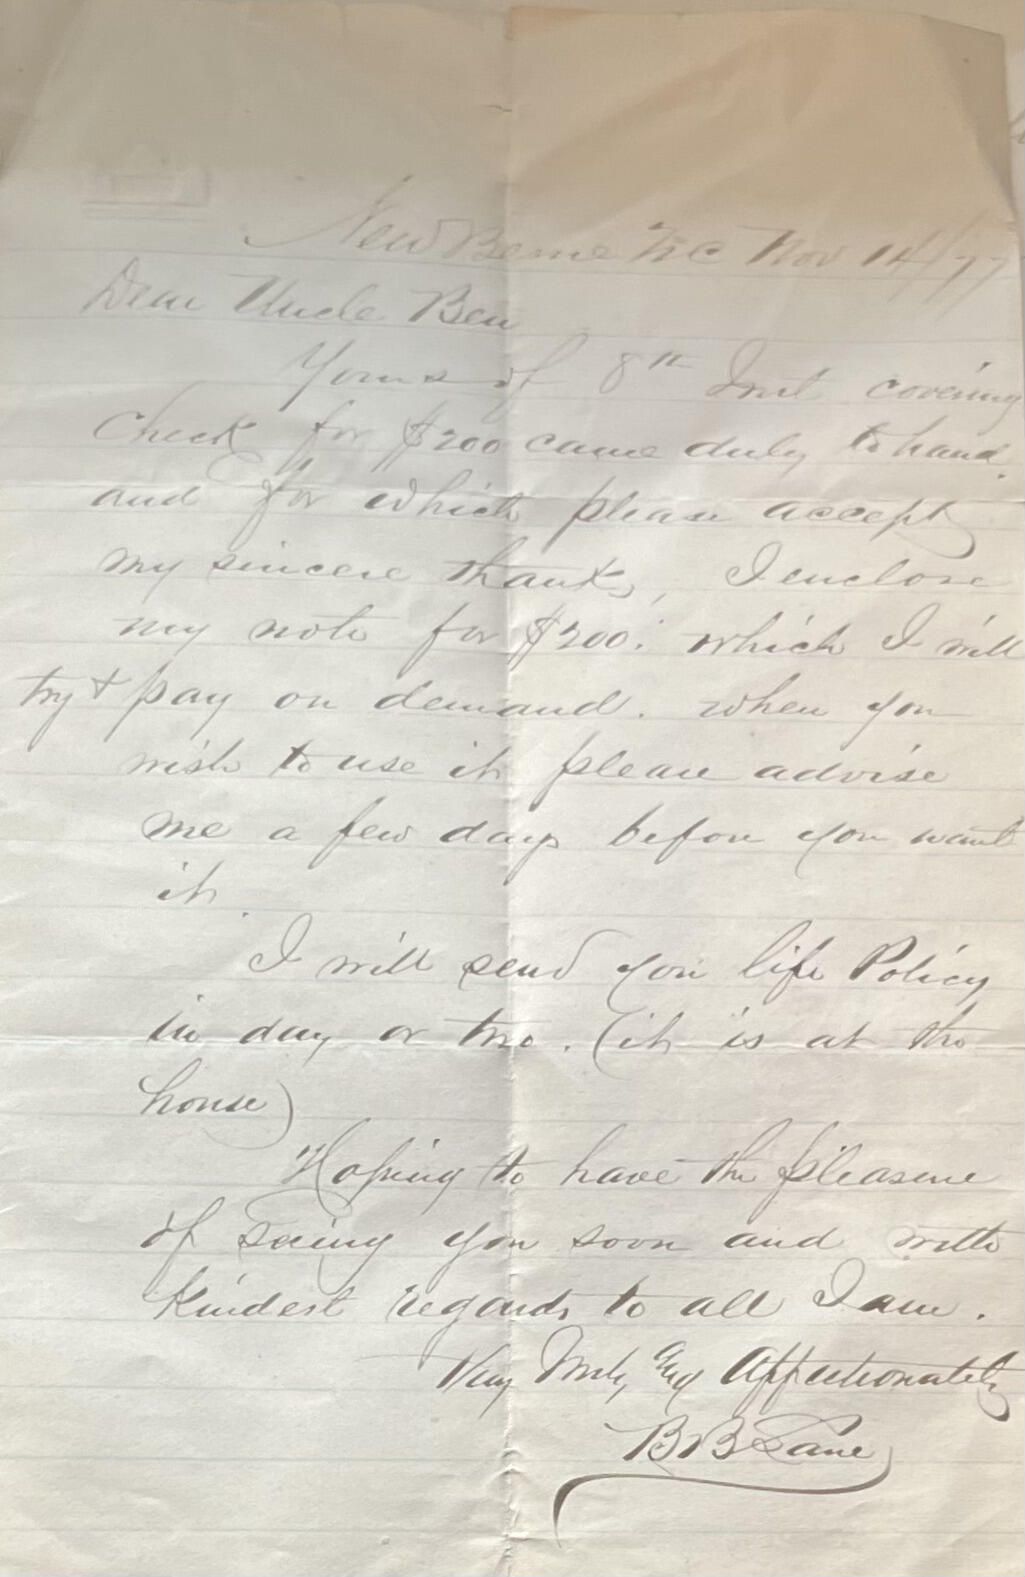 New Berne N.C. Nov 14/77
Dear Uncle Ben
Yours of 8th Inst covering
Check for $200 came duly to hand.
and for which please accept
my sincere thanks, I enclose
my note for $200. which I will
try + pay on demand. when you
wish to use it please advise
me a few days before you want
it.
I will send you life Policy
in day or two. (it is at the
house)
Hoping to have the pleasure
of seeing you soon and with
Kindest regards to all I am.
Very Truly, Affectionately
B B Lane